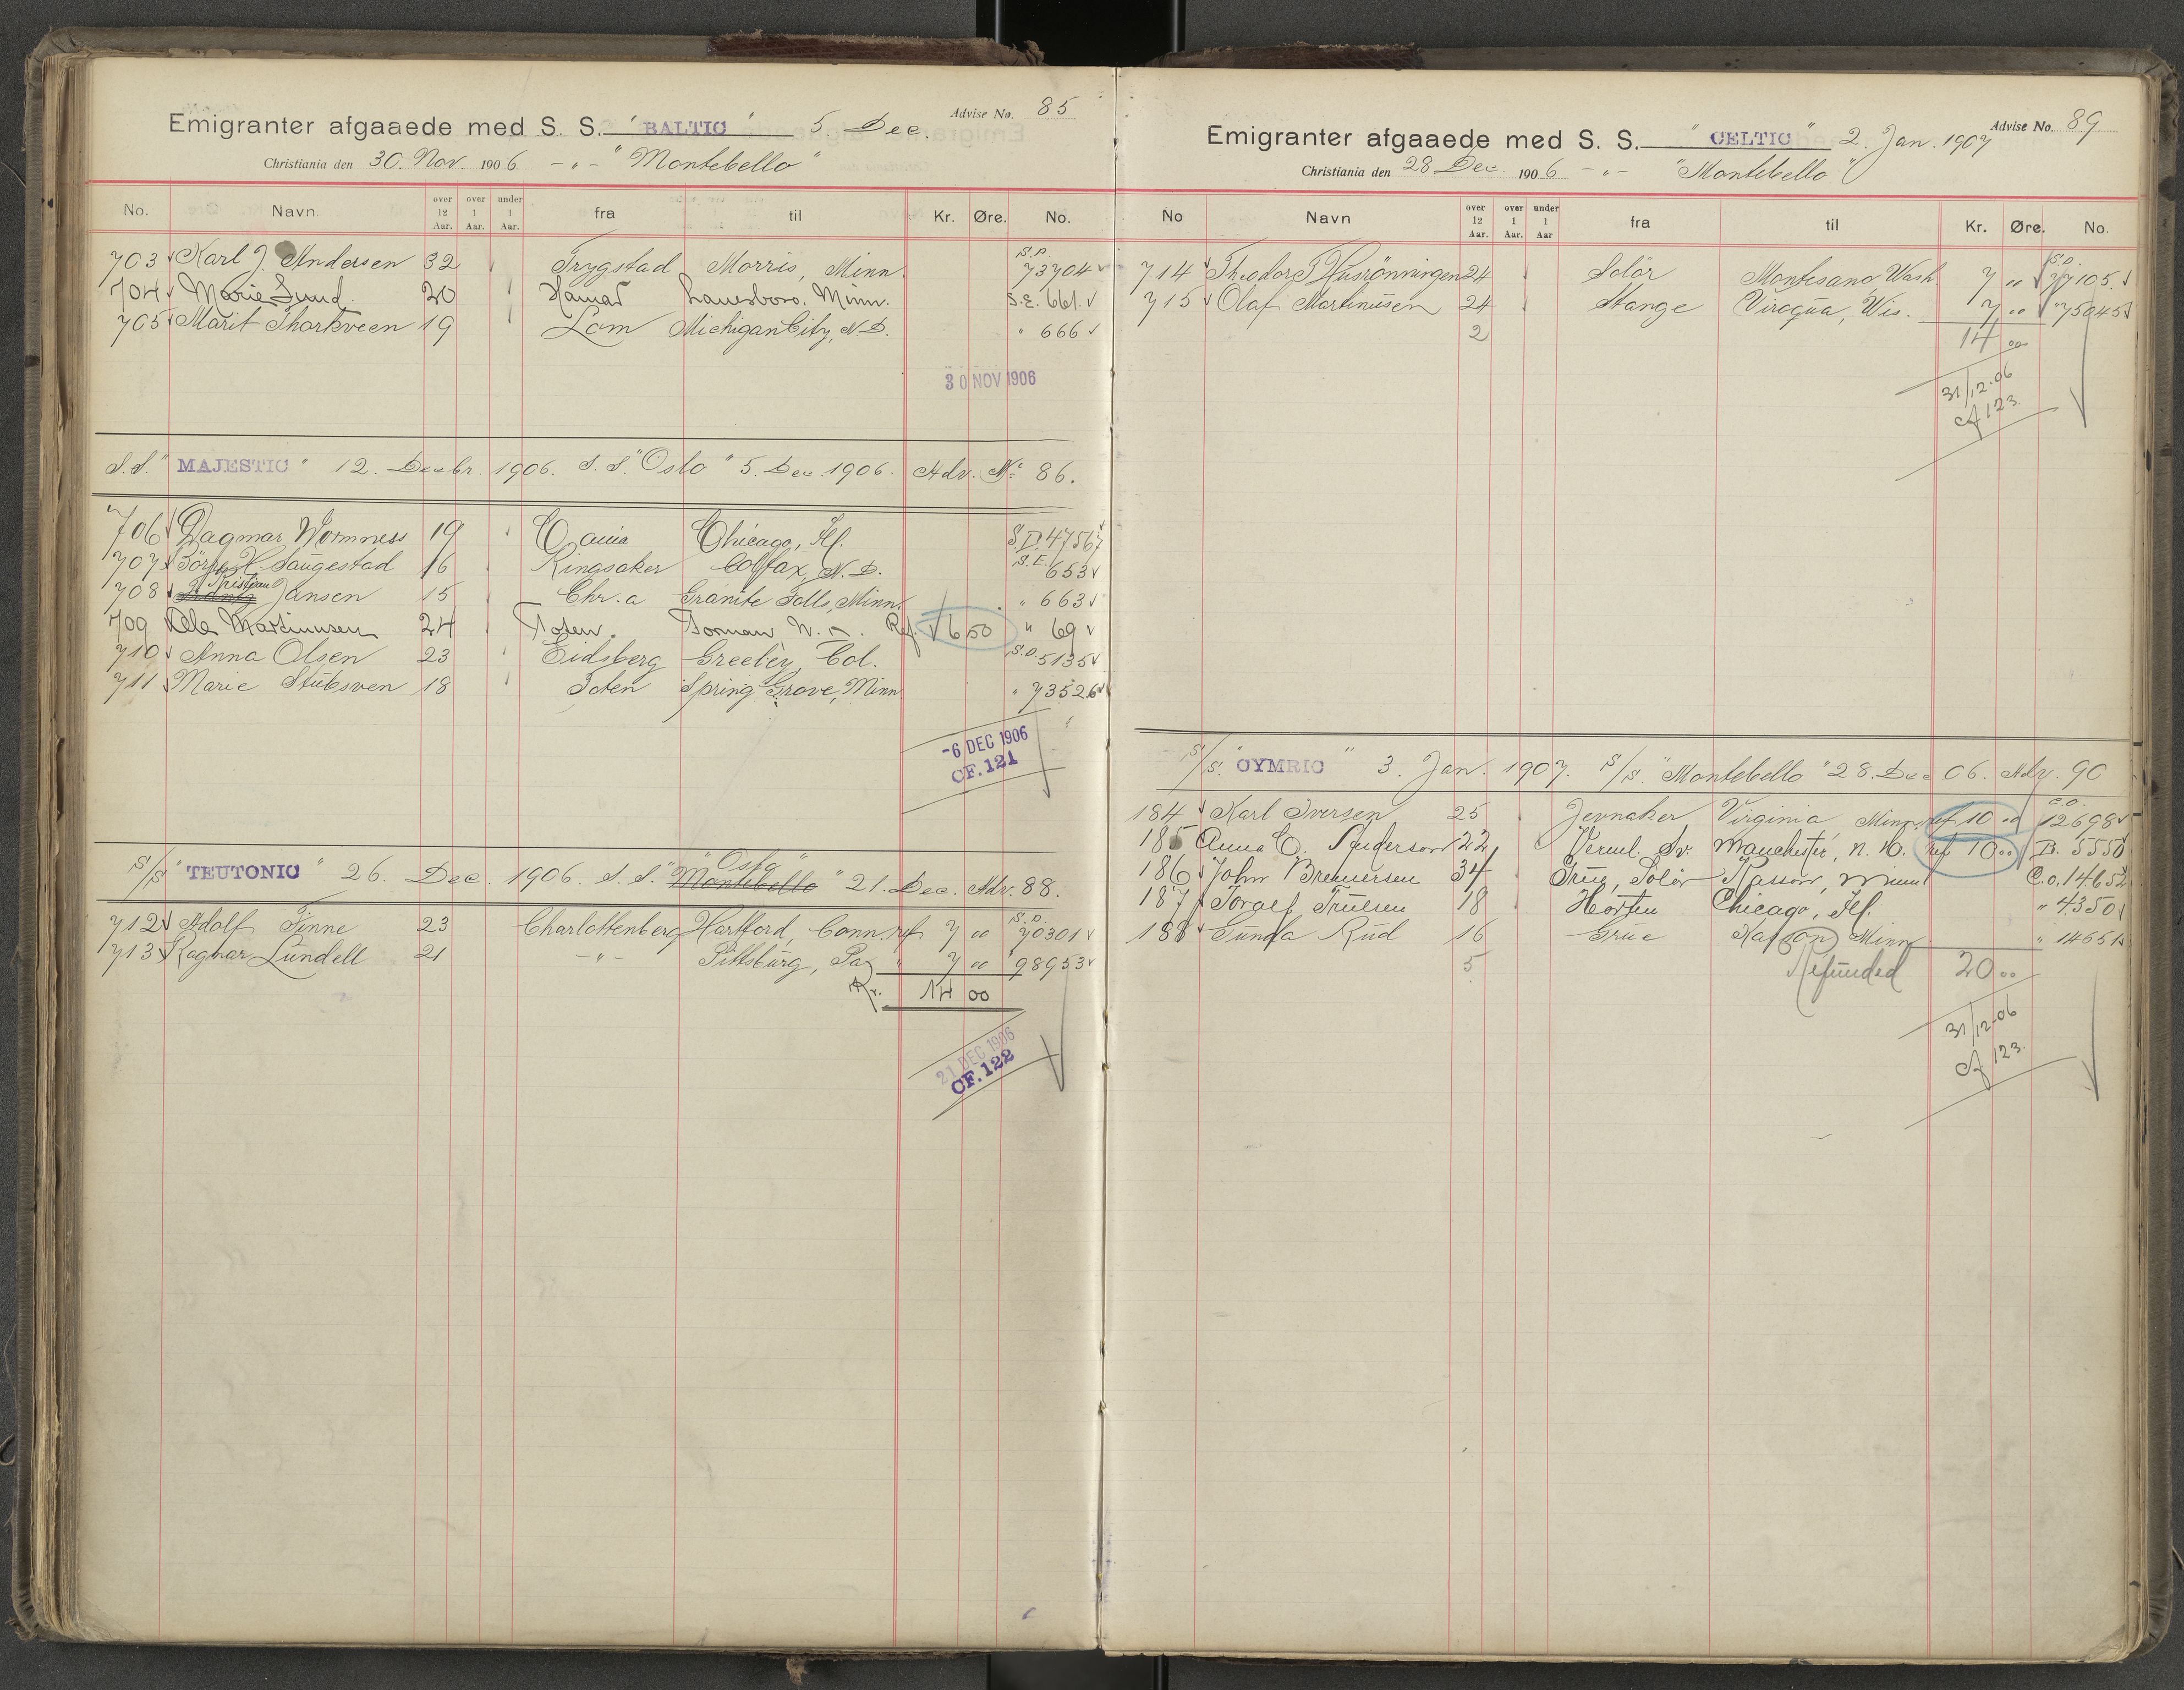 Advise No. 85
Emigranter afgaaede med S. S. "BALTIC" 5. Dec.
Christiania den 30. Nov. 1906 - " - "Montebello"
No. Navn over 12 Aar. over 1 Aar. under 1 Aar. fra til Kr. Øre. No.
703 Karl J. Andersen 32 Trygstad Morris, Minn. S.D. 73704
704 Marie Lund. 20 Hamar Lanesboro. Minn. S.E. 661.
705 Marit Thorkveen 19 Lom Michigan City, N.D. " 666
30 NOV 1906
S.S. "MAJESTIC" 12. Decbr. 1906. S.S. "Oslo" 5. Dec. 1906. Adv. No: 86.
706 Dagmar Wormness 19 Chicago, Ill. S.D. 47567
707 Saugestad 16 Ringsaker Colfax, N.D. S.E. 653
708 Kristian Jansen 15 Chr.a Granite Falls, Minn. " 663
709 Ole Martinusen 24 Toten. Forman N.D. Ref. 6 50 " 69
710 Anna Olsen 23 Eidsberg Greeley, Col. S.D. 5135
711 Marie Stubsven 18 Toten Spring Grove, Minn " 73526
-6 DEC 1906
CF. 121
S/S "TEUTONIC" 26. Dec. 1906. S.S. "Montebello" "Oslo" 21. Dec. Adv. 88.
712 Adolf Finne 23 Charlottenberg Hartford, Conn. ref 7 00 S.D. 70301
713 Ragnar Lundell 21 - " - Pittsburg, Pa " 7 00 98953
Kr. 14 00
21 DEC 1906
CF. 122
Advise No. 89
Emigranter afgaaede med S. S. "CELTIC" 2. Jan. 1907
Christiania den 28 Dec. 1906 - " - "Montebello"
No Navn over 12 Aar. over 1 Aar. under 1 Aar fra til Kr. Øre. No.
714 Theodor T. Husrönningen 24 Solör Montesano Wash. 7 00 S.D. 77105.
715 Olaf Martinusen 24 Stange Viroqua, Wis. 7 00 " 75045
2 14 00
31/12-06
cf 123.
S/S. "CYMRIC" 3. Jan. 1907. S/S. "Montebello" 28. Dec 06. Adv. 90
184 Karl Iversen 25 Jevnaker Virginia Minn. ref 10 00 C.O. 12698
185 Anna C. Anderson 22 Verml. Sv. Manchester, N.H. ref 10 00 D. 5550
186 John Bremersen 34 Grue, Solör Kasson, Minn C.O. 14652
187 Toralf Trulsen 18 Horten Chicago, Ill. " 4350
188 Gunda Rud 16 Grue Kasson Minn " 14651
5 Refunded 20 00
31/12-06
cf 123.